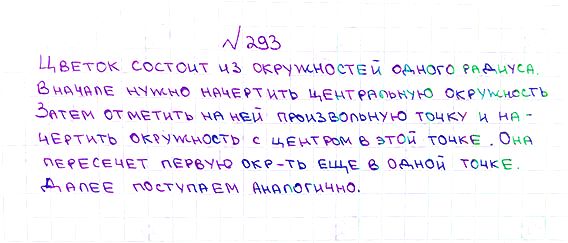 № 293
Цветок состоит из окружностей одного радиуса.
Вначале нужно начертить центральную окружность
Затем отметить на ней произвольную точку и на-
чертить окружность с центром в этой точке. Она
пересечет первую окр-ть еще в одной точке.
Далее поступаем аналогично.